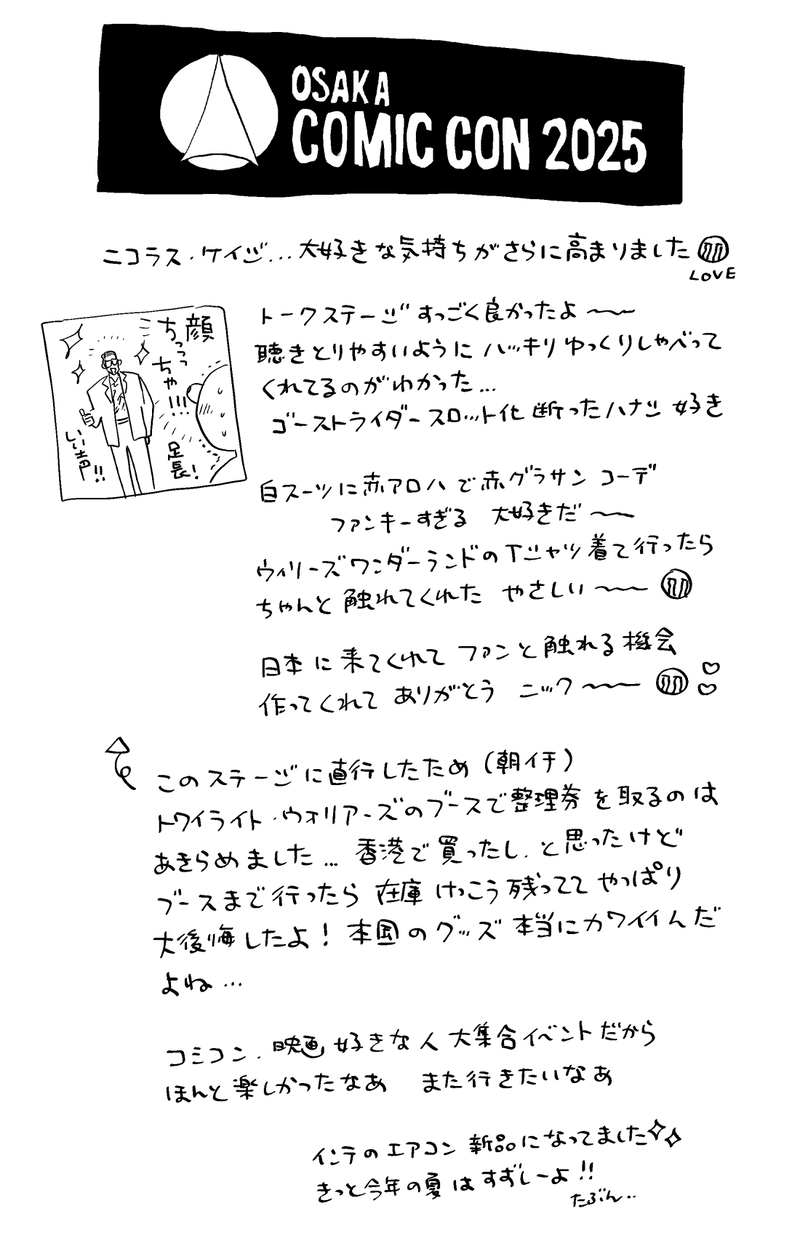 OSAKA
COMIC CON 2025
ニコラス・ケイジ…大好きな気持ちがさらに高まりました
LOVE
顔
ちっっっ
ちゃ!!!
いい声!!
足長!
トークステージ すっごく良かったよ〜〜
聴きとりやすいように ハッキリ ゆっくりしゃべって
くれてるのがわかった…
ゴーストライダースロット化 断ったハナシ 好き
白スーツに赤アロハで赤グラサン コーデ
ファンキーすぎる 大好きだ〜〜
ウィリーズワンダーランドのTシャツ着て行ったら
ちゃんと触れてくれた やさしい〜〜
日本に来てくれて ファンと触れる機会
作ってくれて ありがとう ニック〜〜
このステージに直行したため(朝イチ)
トワイライト・ウォリアーズのブースで整理券を取るのは
あきらめました… 香港で買ったし、と思ったけど
ブースまで行ったら 在庫けっこう残ってて やっぱり
大後悔したよ! 本国のグッズ 本当にカワイイんだ
よね…
コミコン、映画好きな人 大集合イベントだから
ほんと楽しかったなあ また行きたいなあ
インテのエアコン 新品になってました
きっと今年の夏はすずしーよ!!
たぶん..